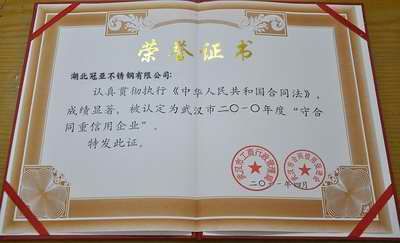 荣誉证书
湖北冠亚不锈钢有限公司:
认真贯彻执行《中华人民共和国合同法》,
成绩显著,被认定为武汉市二〇一〇年度“守合
同重信用企业”。
特发此证。
武汉市工商行政管理局
二〇一一年四月